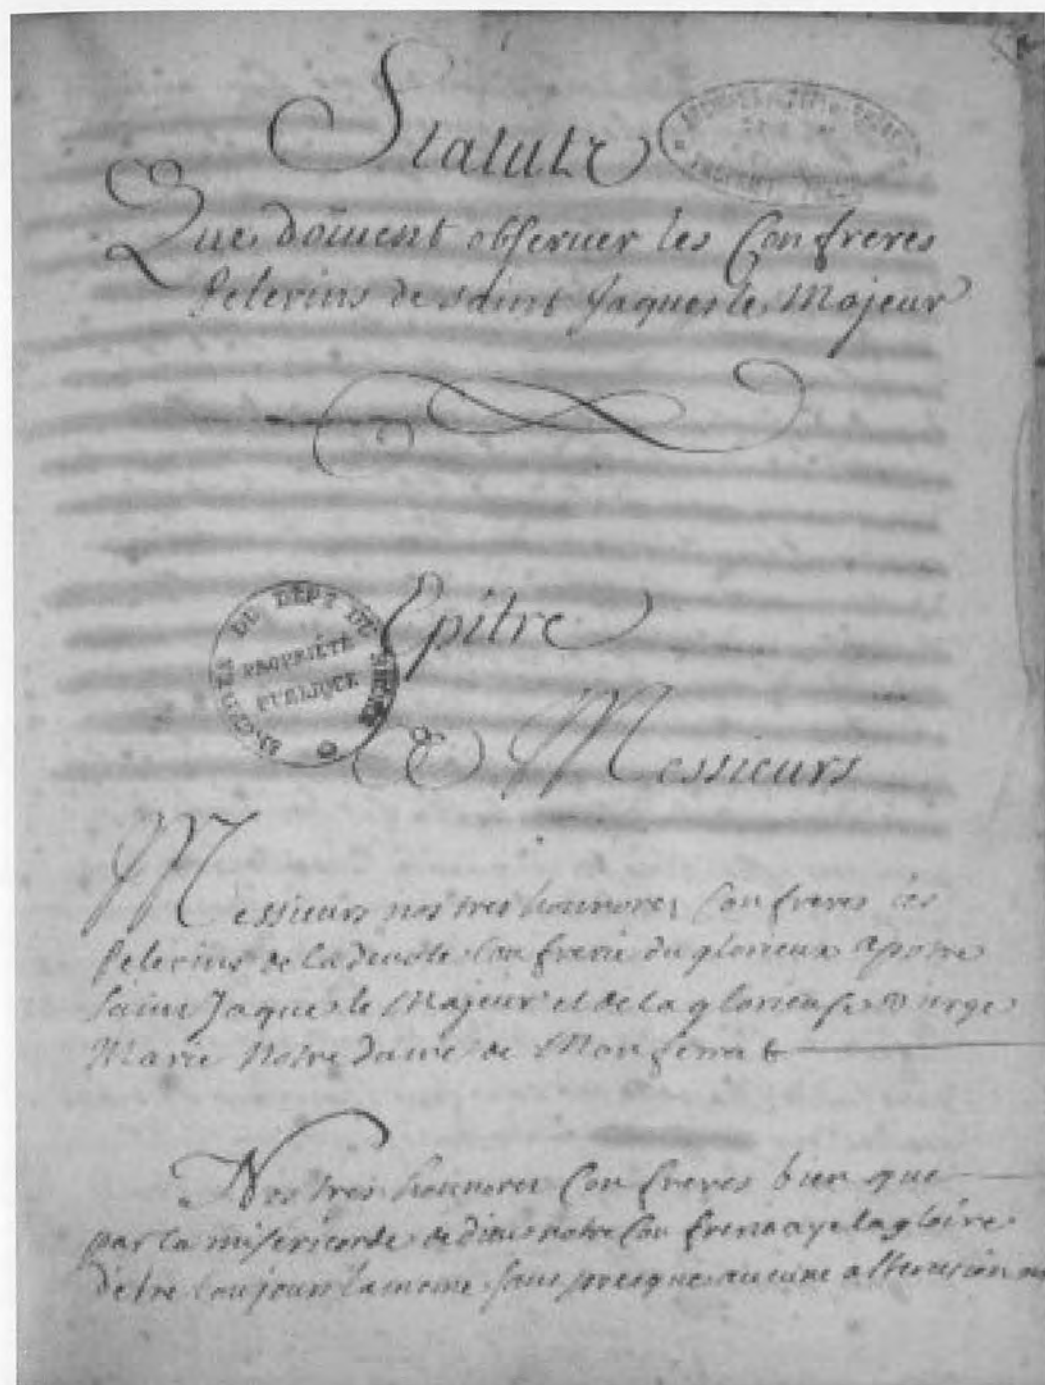 Statuts
Que doiuent obseruer les Confreres
Pelerins de saint Jaques le Majeur
ARCHIVES DU DEPT DU RHONE
PROPRIÉTÉ
PUBLIQUE
Epître
A Messieurs
Messieurs nos tres honnorez Confreres les
Pelerins de la deuote Confrerie du glorieux apotre
saint Jaque le Majeur et de la glorieuse Vierge
Marie Notre dame de Monferrat
Nos tres honnorez Confreres bien que
par la misericorde de dieu notre Confrerie aye la gloire
d'etre toujours la meme sans presque aucune alteration